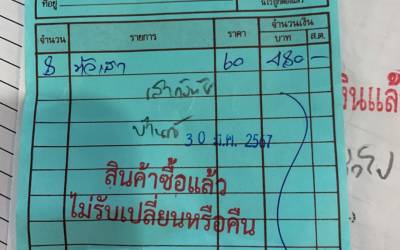 ที่อยู่
จำนวน รายการ ราคา จำนวนเงิน
บาท ส.ต.
8 หัวเสา 60 480 -
30 ธ.ค. 2567
สินค้าซื้อแล้ว
ไม่รับเปลี่ยนหรือคืน
เงินแล้